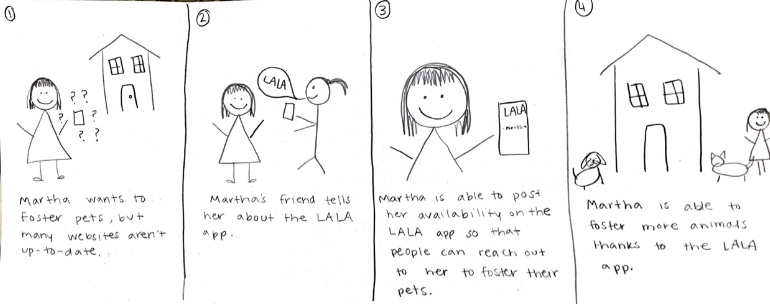 ①
? ?
? ?
? ?
Martha wants to
foster pets, but
many websites aren't
up-to-date.
②
LALA
Martha's friend tells
her about the LALA
app.
③
LALA
Martha
Martha is able to post
her availability on the
LALA app so that
people can reach out
to her to foster their
pets.
④
Martha is able to
foster more animals
thanks to the LALA
app.